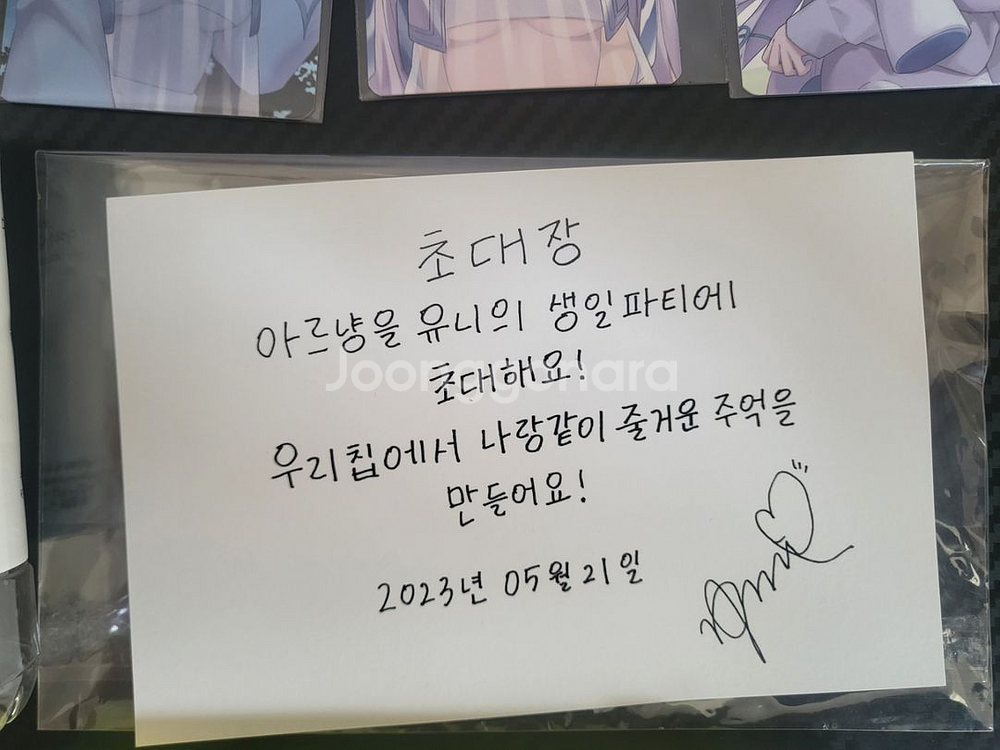 초대장
아르냥을 유니의 생일파티에
초대해요!
Joonggonara
우리칩에서 나랑같이 줄거운 주억을
만들어요!
2023년 05월 21일